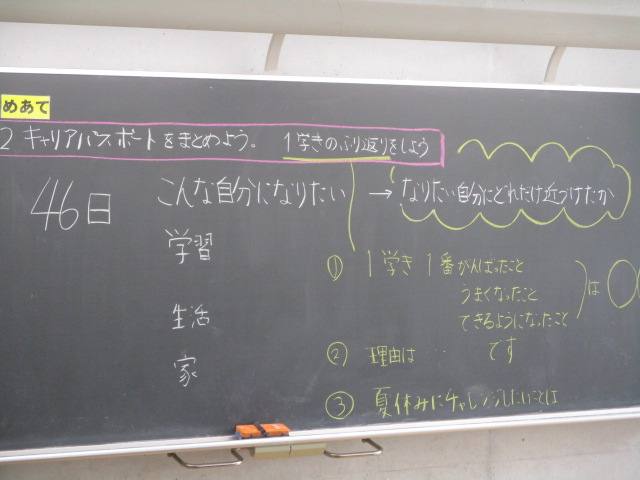 めあて
2 キャリアパスポートをまとめよう。 1学きのふり返りをしよう
46日
こんな自分になりたい → なりたい自分にどれだけ近づけたか
学習
生活
家
① 1学き 1番がんばったこと
うまくなったこと
できるようになったこと
は
② 理由は‥ です
③ 夏休みにチャレンジしたいことは